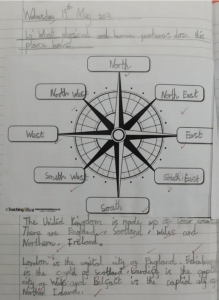 Wednesday 19th May 2021
LO: What physical and human features does this place have?
North
North West
North East
West
East
South West
South East
South
Teaching
The United Kingdom is made up of
There are England, Scotland, Wales and
Northern Ireland.
London is the capital city of England. Edinburgh
is the capital of Scotland. Cardiff is the capital
city of Wales and Belfast is the capital city of
Northern Ireland.